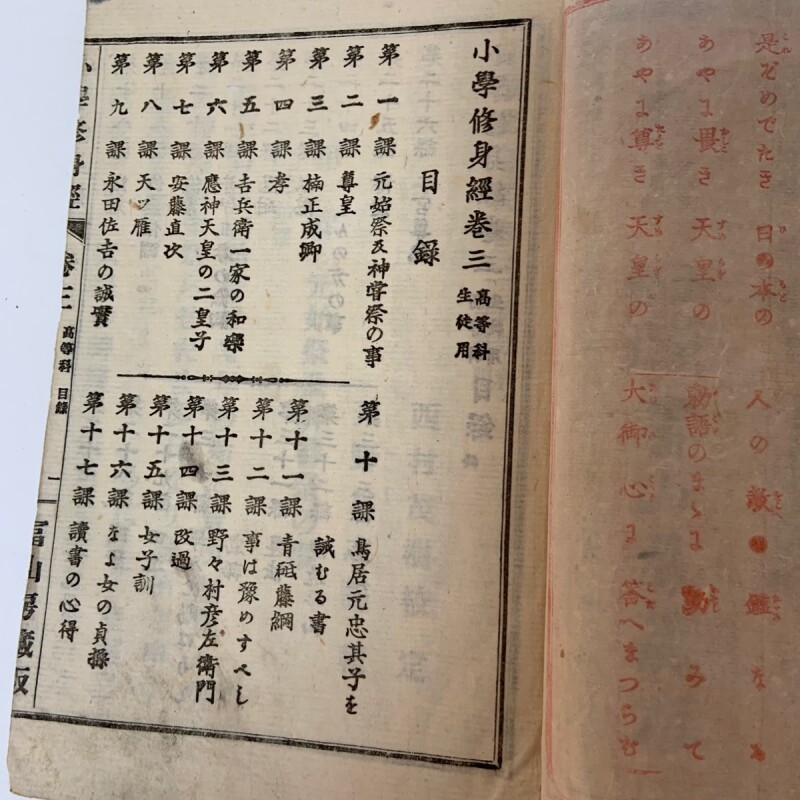 是ぞめでたき 日の本の 人の教の 鑑なる
あやに畏き 天皇の 勅語のまゝに 勤みて
あやに尊き 天皇の 大御心に 答へまつらむ
小學修身經卷三 高等科生徒用
目錄
第一課 元始祭及神嘗祭の事
第二課 尊皇
第三課 楠正成卿
第四課 孝
第五課 吉兵衛一家の和樂
第六課 應神天皇の二皇子
第七課 安藤直次
第八課 天ツ雁
第九課 永田佐吉の誠實
第十課 鳥居元忠其子を
誡むる書
第十一課 青砥藤綱
第十二課 事は豫めすべし
第十三課 野々村彦左衛門
第十四課 改過
第十五課 女子訓
第十六課 なよ女の貞操
第十七課 讀書の心得
小學修身經 卷三 高等科 目錄 一 冨山房藏版